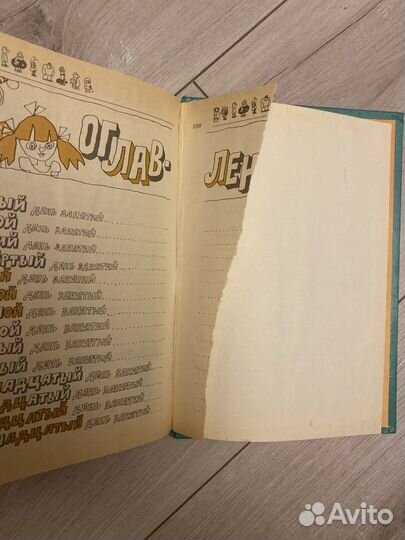 ОГЛАВ-
ый день занятий
ой день занятий
ий день занятий
ртый день занятий
й день занятий
ой день занятий
мой день занятий
ой день занятий
ый день занятий
ый день занятий
адцатый день занятий
дцатый день занятий
дцатый день занятий
адцатый день занятий
ЛЕН
Avito